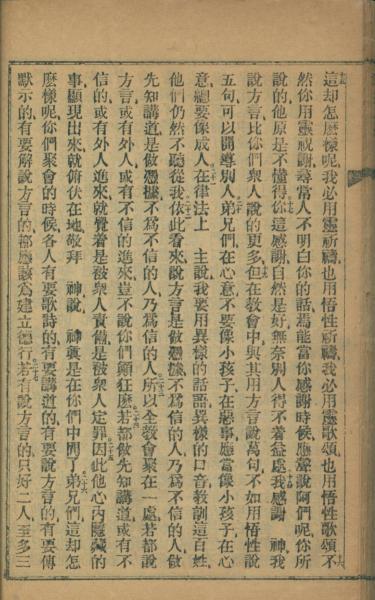 這却怎麽樣呢我必用靈祈禱也用悟性祈禱我必用靈歌頌也用悟性歌頌不
然你用靈祝謝尋常人不明白你的話焉能當你感謝時候應聲說阿們呢你所
說的他原是不懂得你這感謝自然是好無奈别人得不着益處我感謝 神我
說方言比你們衆人說的更多但在敎會中與其用方言說萬句不如用悟性說
五句可以開導别人弟兄們在心意不要像小孩子在惡事應當像小孩子在心
意總要像成人在律法上 主說我要用異樣的話語異樣的口音敎訓這百姓
他們仍然不聽從我依此看來說方言是做憑據不爲信的人乃爲不信的人做
先知講道是做憑據不爲不信的人乃爲信的人所以全敎會聚在一處若都說
方言或有外人或有不信的進來豈不說你們顚狂麽若都做先知講道或有不
信的或有外人進來就覺着是被衆人責備是被衆人定罪因此他心內隱藏的
事顯現出來就俯伏在地敬拜 神說 神眞是在你們中間了弟兄們這却怎
麽樣呢你們聚會的時候各人有要歌詩的有要講道的有要說方言的有要傳
默示的有要解說方言的都應該爲建立德行若有說方言的只好二人至多三